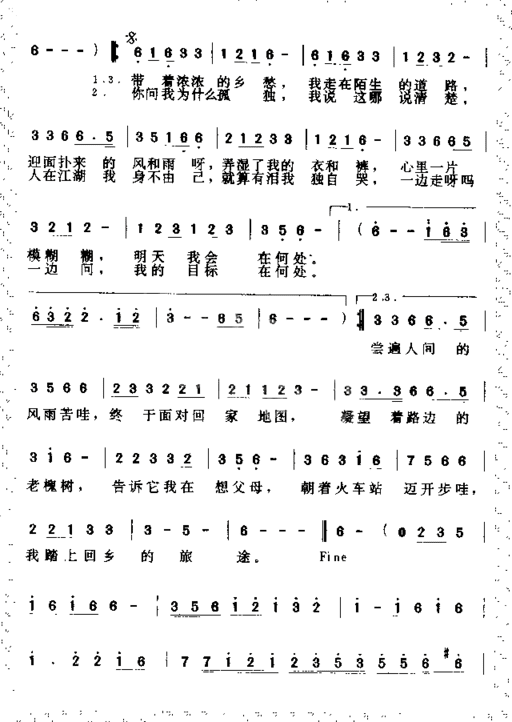 6 - - - ) 61633 | 1216 - | 61633 | 1232 - |
1.3. 带 着浓浓 的乡 愁， 我走在陌生 的道 路，
2. 你问我为什么孤 独， 我说 这哪 说清 楚，
3366.5 | 35166 | 21233 | 1216 - | 33665 |
迎面扑来 的 风和雨 呀，弄湿了我的 衣和 裤， 心里一片
人在江湖 我 身不由 己，就算有泪我 独自 哭， 一边走呀吗
1.
3212 - | 123123 | 356 - | ( 6 - - 163 |
模糊 糊， 明天 我会 在何处。
一边 问， 我的 目标 在何处。
2.3.
6322.12 | 3 - - 65 | 6 - - - ) 3366.5 |
尝遍人间 的
3566 | 2333221 | 21235 - | 33.366.5 |
风雨苦哇，终 于面对回 家 地图， 凝望 着路边 的
316 - | 22332 | 356 - | 36316 | 7566 |
老槐树， 告诉它我在 想父母， 朝着火车站 迈开步哇，
22133 | 3 - 5 - | 6 - - - | 6 - ( 0235 |
我踏上回乡 的 旅 途。 Fine
16166 - | 35612132 | 1 - - - | 1 - 1616 |
1 . 2216 | 77121235355 #6 |